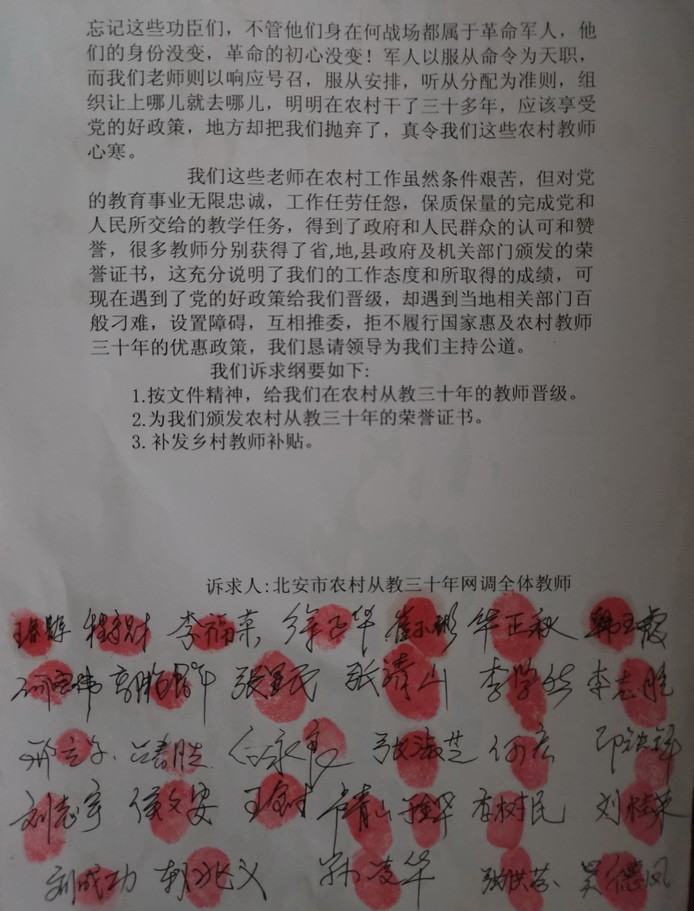 忘记这些功臣们，不管他们身在何战场都属于革命军人，他
们的身份没变，革命的初心没变！军人以服从命令为天职，
而我们老师则以响应号召，服从安排，听从分配为准则，组
织让上哪儿就去哪儿，明明在农村干了三十多年，应该享受
党的好政策，地方却把我们抛弃了，真令我们这些农村教师
心寒。
我们这些老师在农村工作虽然条件艰苦，但对党
的教育事业无限忠诚，工作任劳任怨，保质保量的完成党和
人民所交给的教学任务，得到了政府和人民群众的认可和赞
誉，很多教师分别获得了省,地,县政府及机关部门颁发的荣
誉证书，这充分说明了我们的工作态度和所取得的成绩，可
现在遇到了党的好政策给我们晋级，却遇到当地相关部门百
般刁难，设置障碍，互相推委，拒不履行国家惠及农村教师
三十年的优惠政策，我们恳请领导为我们主持公道。
我们诉求纲要如下:
1.按文件精神，给我们在农村从教三十年的教师晋级。
2.为我们颁发农村从教三十年的荣誉证书。
3.补发乡村教师补贴。
诉求人:北安市农村从教三十年网调全体教师
李福荣 华正秋 韩玉霞
张清山 李志胜
张淑芝 何宏
刘志宇 侯文安 李树民 刘桂荣
刘成功 孙凌华 吴德凤